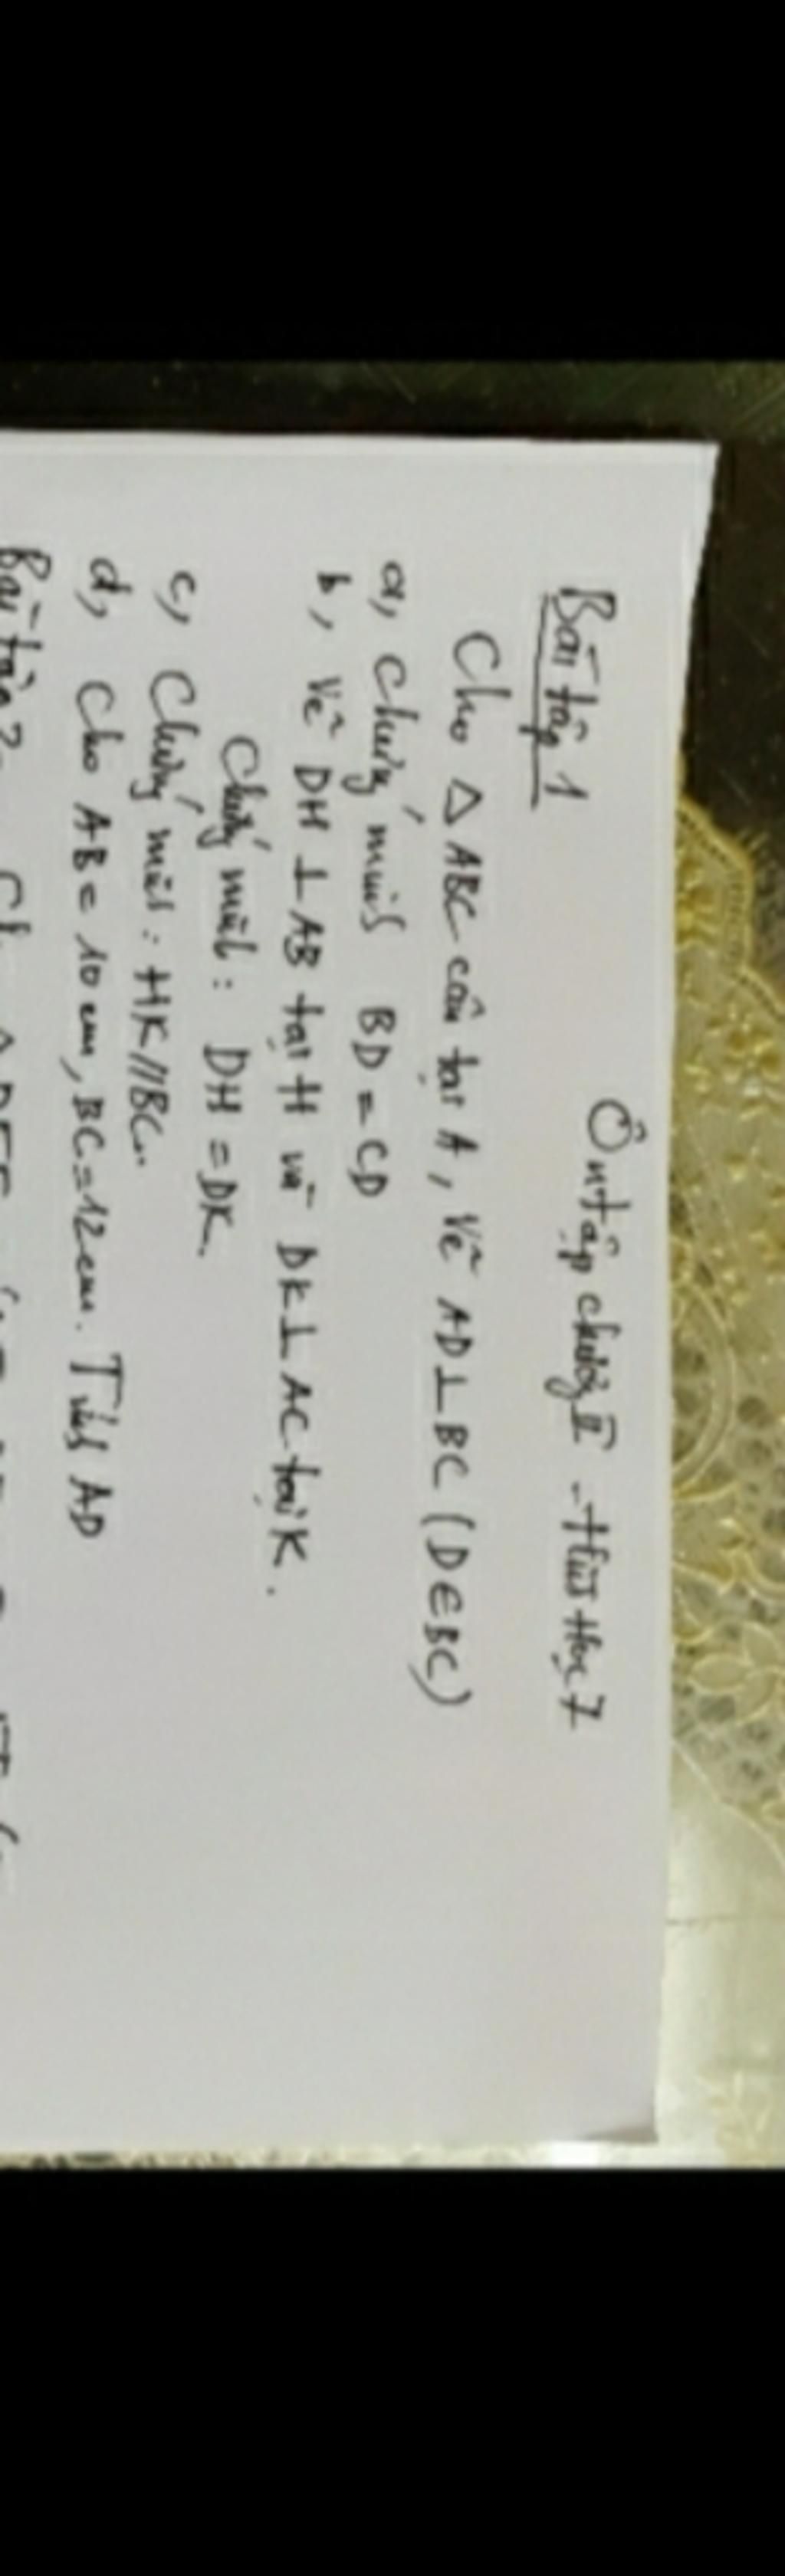 Ôn tập chương II - Hình Học 7
Bài tập 1
Cho △ABC cân tại A, Vẽ AD⊥BC (D∈BC)
a, Chứng minh BD = CD
b, Vẽ DH ⊥ AB tại H và DK ⊥ AC tại K.
Chứng minh: DH = DK.
c, Chứng minh: HK//BC.
d, Cho AB = 10 cm, BC = 12 cm. Tính AD
Bài tập 2